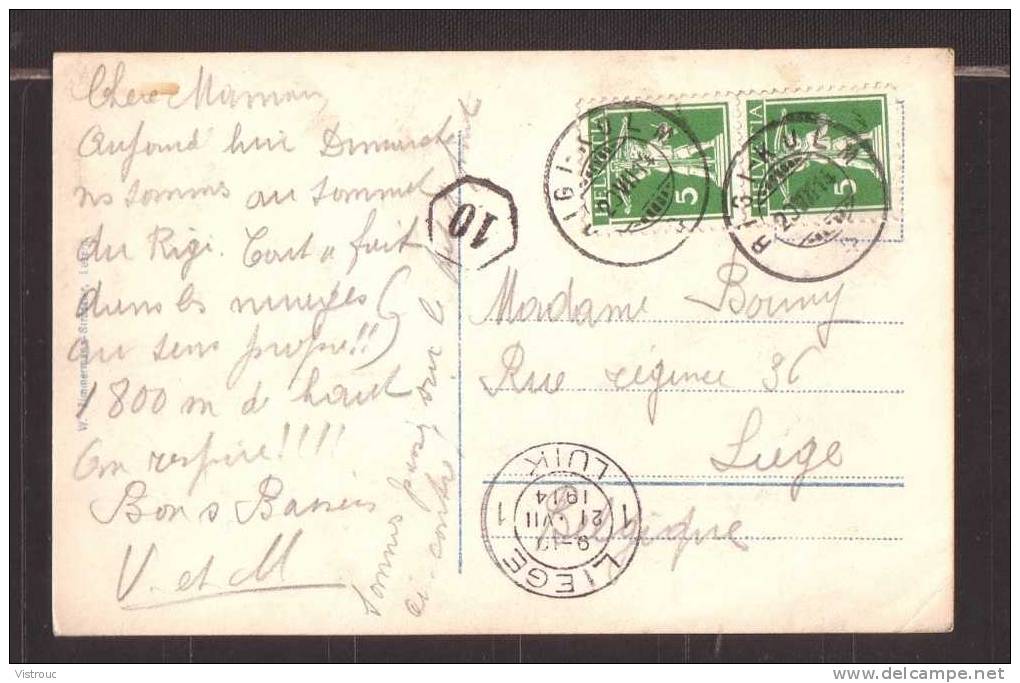 Chere Maman
Aujourd'hui Dimanche
ns sommes au sommet
du Rigi. Tout a fait
dans les nuages
au sens propre!!
1800 m de haut
On respire!!!!
Bons Baisers
V. et M
sommes passés sur le
ci-contre
10
HELVETIA
5
HELVETIA
5
RIGI-KULM
RIGI-KULM
Madame Bouny
Rue régence 36
Liége
Belgique
LIEGE 1
9-10
21 VII
1914
1 LUIK
Vistrouc
www.delcampe.net